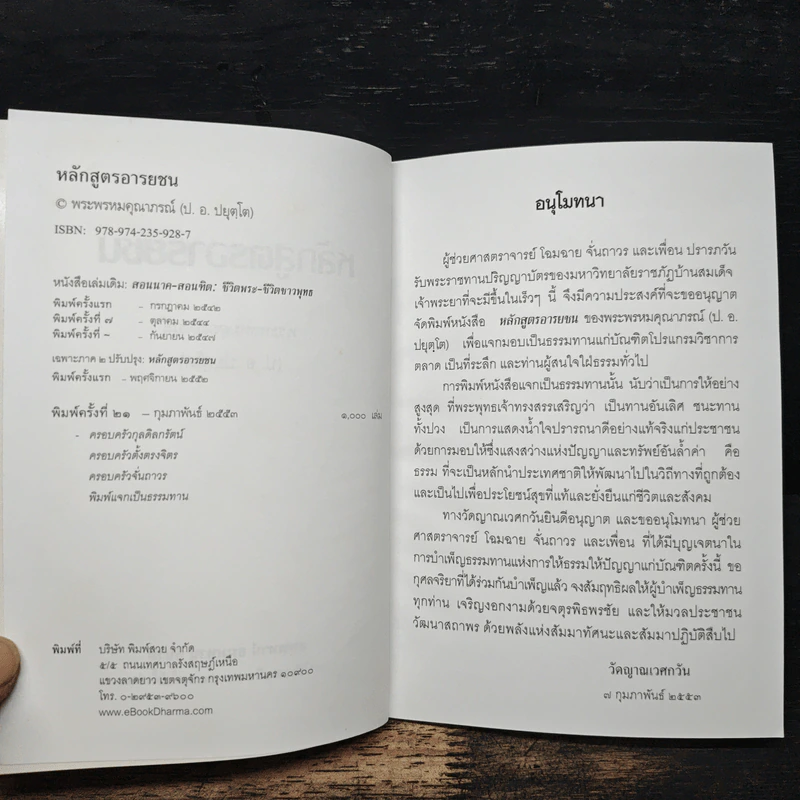 หลักสูตรอารยชน
© พระพรหมคุณาภรณ์ (ป. อ. ปยุตฺโต)
ISBN: 978-974-235-928-7
หนังสือเล่มเดิม: สอนนาค-สอนฑิต: ชีวิตพระ-ชีวิตชาวพุทธ
พิมพ์ครั้งแรก - กรกฎาคม ๒๕๔๒
พิมพ์ครั้งที่ ๗ - ตุลาคม ๒๕๔๔
พิมพ์ครั้งที่ – - กันยายน ๒๕๔๗
เฉพาะภาค ๒ ปรับปรุง: หลักสูตรอารยชน
พิมพ์ครั้งแรก - พฤศจิกายน ๒๕๕๒
พิมพ์ครั้งที่ ๒๑ – กุมภาพันธ์ ๒๕๕๓ ๑,๐๐๐ เล่ม
- ครอบครัวกุลดิลกรัตน์
ครอบครัวตั้งตรงจิตร
ครอบครัวจั่นถาวร
พิมพ์แจกเป็นธรรมทาน
พิมพ์ที่ บริษัท พิมพ์สวย จำกัด
๕/๕ ถนนเทศบาลรังสฤษฎ์เหนือ
แขวงลาดยาว เขตจตุจักร กรุงเทพมหานคร ๑๐๙๐๐
โทร. ๐-๒๙๕๓-๙๖๐๐
www.eBookDharma.com
อนุโมทนา
ผู้ช่วยศาสตราจารย์ โฉมฉาย จั่นถาวร และเพื่อน ปรารภวัน
รับพระราชทานปริญญาบัตรของมหาวิทยาลัยราชภัฏบ้านสมเด็จ
เจ้าพระยาที่จะมีขึ้นในเร็วๆ นี้ จึงมีความประสงค์ที่จะขออนุญาต
จัดพิมพ์หนังสือ หลักสูตรอารยชน ของพระพรหมคุณาภรณ์ (ป. อ.
ปยุตฺโต) เพื่อแจกมอบเป็นธรรมทานแก่บัณฑิตโปรแกรมวิชาการ
ตลาด เป็นที่ระลึก และท่านผู้สนใจใฝ่ธรรมทั่วไป
การพิมพ์หนังสือแจกเป็นธรรมทานนั้น นับว่าเป็นการให้อย่าง
สูงสุด ที่พระพุทธเจ้าทรงสรรเสริญว่า เป็นทานอันเลิศ ชนะทาน
ทั้งปวง เป็นการแสดงน้ำใจปรารถนาดีอย่างแท้จริงแก่ประชาชน
ด้วยการมอบให้ซึ่งแสงสว่างแห่งปัญญาและทรัพย์อันล้ำค่า คือ
ธรรม ที่จะเป็นหลักนำประเทศชาติให้พัฒนาไปในวิถีทางที่ถูกต้อง
และเป็นไปเพื่อประโยชน์สุขที่แท้และยั่งยืนแก่ชีวิตและสังคม
ทางวัดญาณเวศกวันยินดีอนุญาต และขออนุโมทนา ผู้ช่วย
ศาสตราจารย์ โฉมฉาย จั่นถาวร และเพื่อน ที่ได้มีบุญเจตนาใน
การบำเพ็ญธรรมทานแห่งการให้ธรรมให้ปัญญาแก่บัณฑิตครั้งนี้ ขอ
กุศลจริยาที่ได้ร่วมกันบำเพ็ญแล้ว จงสัมฤทธิผลให้ผู้บำเพ็ญธรรมทาน
ทุกท่าน เจริญงอกงามด้วยจตุรพิธพรชัย และให้มวลประชาชน
วัฒนาสถาพร ด้วยพลังแห่งสัมมาทัศนะและสัมมาปฏิบัติสืบไป
วัดญาณเวศกวัน
๗ กุมภาพันธ์ ๒๕๕๓